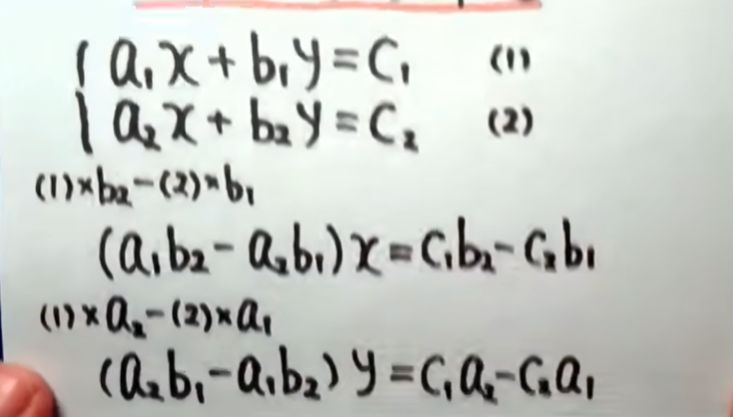 a₁x + b₁y = c₁ (1)
a₂x + b₂y = c₂ (2)
(1)×b₂-(2)×b₁
(a₁b₂ - a₂b₁) x = c₁b₂ - c₂b₁
(1)×a₂-(2)×a₁
(a₂b₁ - a₁b₂) y = c₁a₂ - c₂a₁